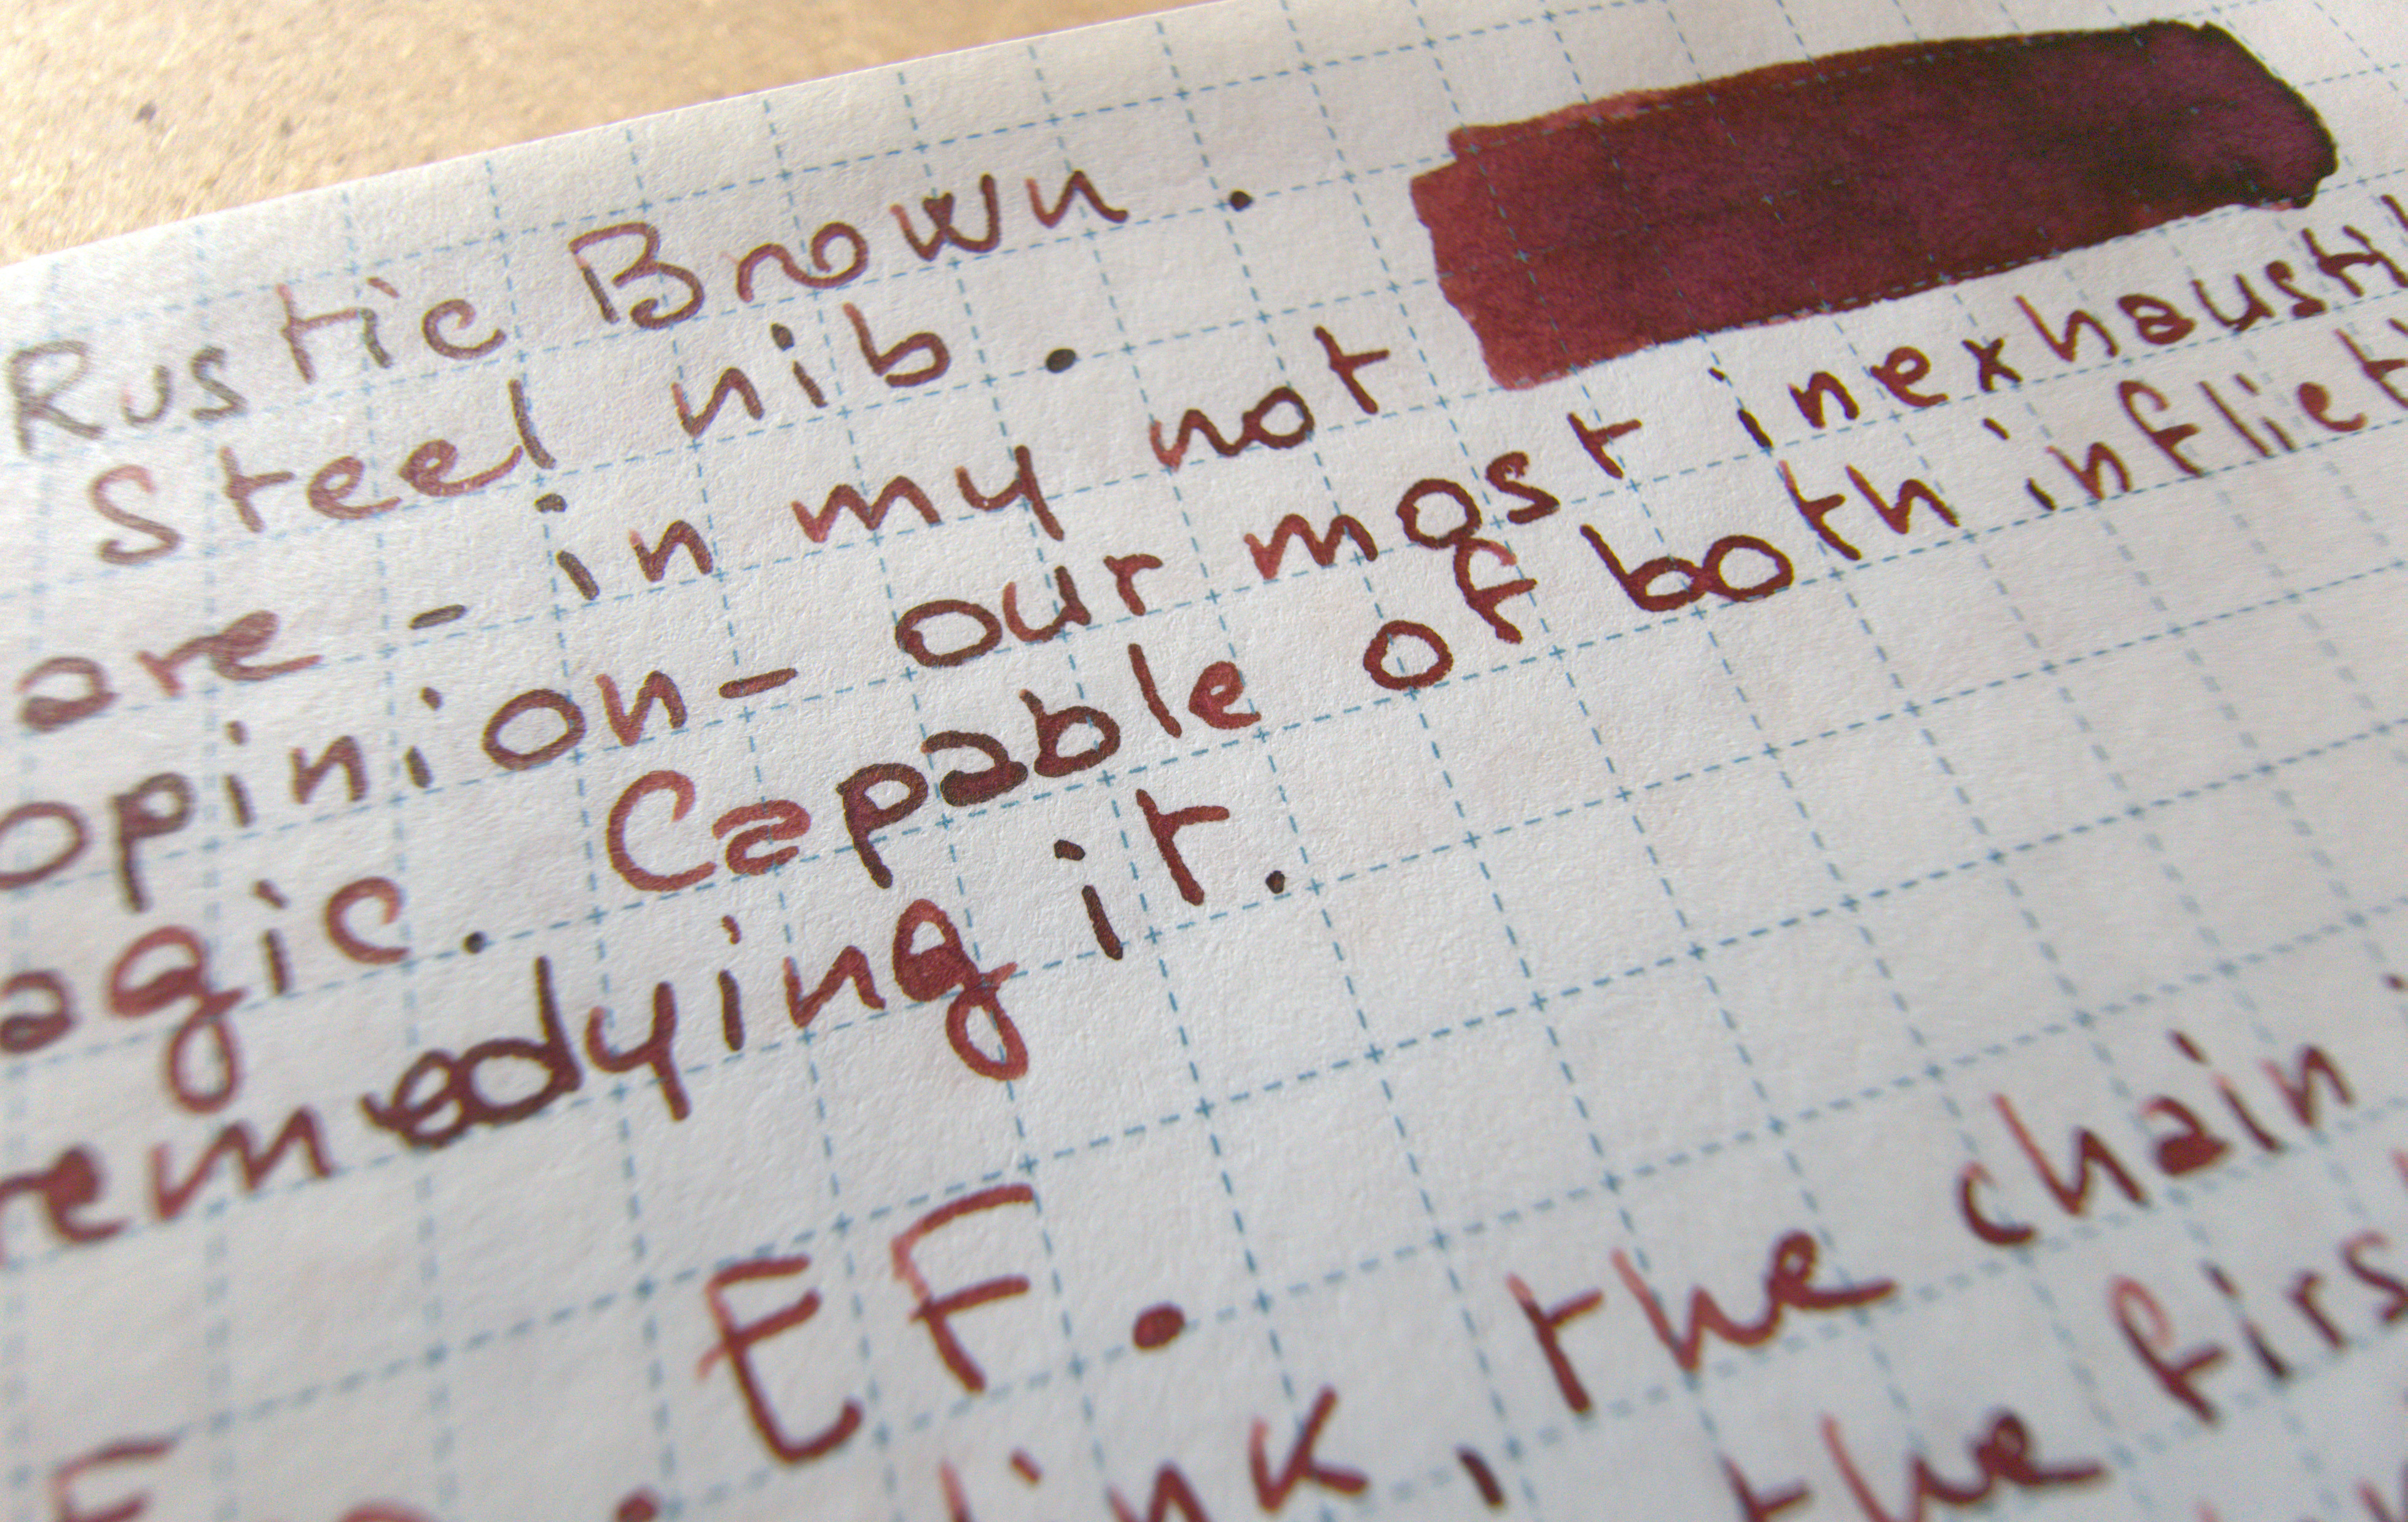 Rustic Brown.
Steel nib.
are - in my not
opinion - our most inexhausti
agic. Capable of both inflict
remedying it.
EF.
link, the chain
the firs